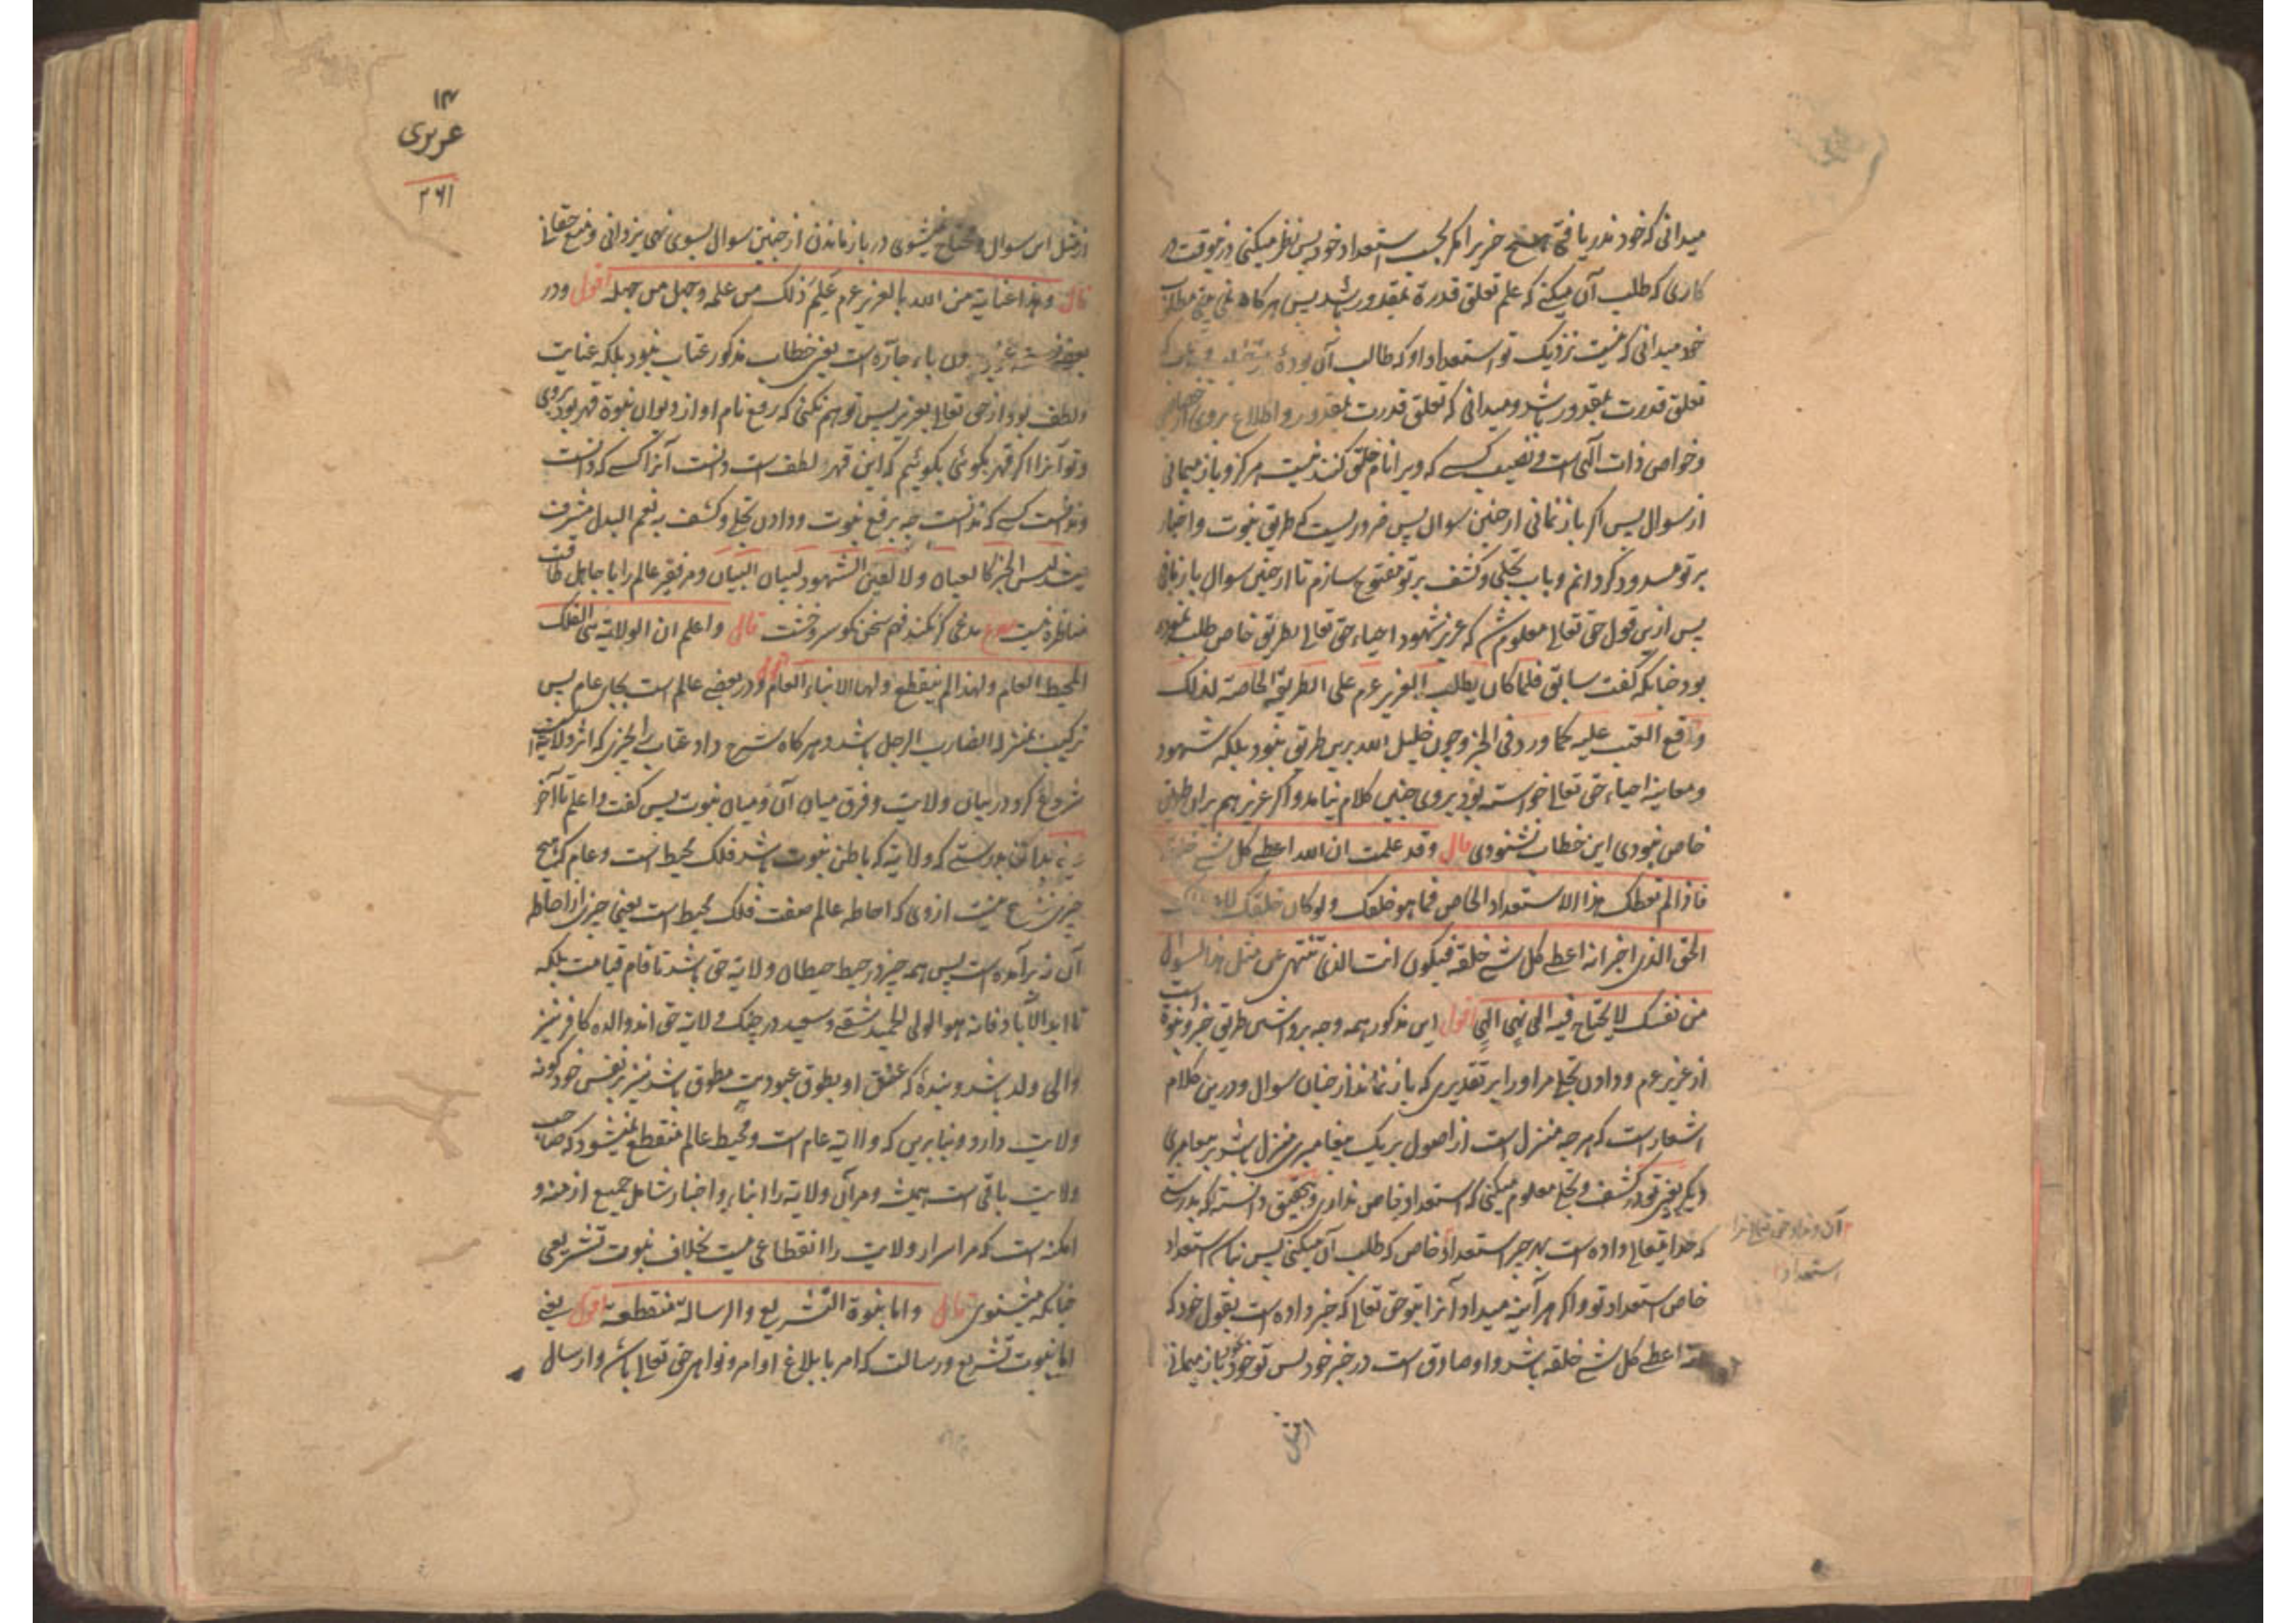 میدانی که خود ندریافتی هیچ چیز را مگر بحسب استعداد خود پس نظر میکنی درینوقت در
کاری که طلب آن میکنی که علم تعلق قدرة بمقدور باشد پس هرگاه نمی بینی مطلوب
خود میدانی که نیست نزدیک تو استعداد او که طالب آن بودهٔ
تعلق قدرت بمقدور باشد و میدانی که تعلق قدرت بمقدور و اطلاع بروی از خصایص
و خواص ذات الهی است و نصیب کسے که ویرا نام خلق کنند نیست هرگز و باز نیمانی
از سوال پس اگر باز نمانی از چنین سوال پس ضروریست که طریق نبوت و اخبار
بر تو مسدود گردانم و باب تجلی و کشف بر تو مفتوح سازم تا از چنین سوال باز مانی
پس ازین قول حق تعالی معلوم شد که عزیر شهود احیاء حق تعالی بطریق خاص طلب نموده
بود چنانکه گفت سابق فلما کان یطلب العزیر عم علی الطریقة الخاصة لذلک
وقع العتب علیه کما ورد فی الخبر و چون خلیل الله برین طریق نبود بلکه شهود
و معاینه احیاء حق تعالی خواسته بود بروی چنین کلام نیامد و اگر عزیر هم بران طریق
خاص نبودی این خطاب نشنودی قال وقد علمت ان الله اعطی کل شے خلقه
فاذا لم تعطک هذا الاستعداد الخاص فما هو خلقک ولو کان خلقک لاعطاک
الحق الذی اخبر انه اعطی کل شے خلقه فیکون انت الذی تنتهی عن مثل هذا السوال
من نفسک لا یحتاج فیه الی نهی الهی اقول این مذکور همه وجه برداشتن طریق خبر و نبوة است
از عزیر عم و دادن تجلی مر او را بر تقدیری که باز نماند از چنان سوال و درین کلام
اشعار است که هرچه منزل است از اصول بر یک پیغامبری منزل باشد بر پیغامبری
دیگر یعنی تو در کشف و تجلی معلوم میکنی که استعداد خاص نداری و بتحقیق دانسته که بدرستے
که خدا یتعالی داده است هر چیز استعداد خاص که طلب آن میکنی پس نباشد استعداد
خاص استعداد تو و اگر هر آینه میداد آنرا بتو حق تعالی که خبر داده است بقول خود که
اعطی کل شے خلقه باشد و او صادق است در خبر خود پس تو خود باز میمانی
آن و نداد حق تعالی ترا
استعداد
از مثل
۱۴
عزیری
۲۶۱
از مثل این سوال و محتاج نمیشوی در باز ماندن از چنین سوال بسوی نهی یزدانی و منع حقانی
قال وهذا عنایة من الله بالعزیر عم عَلِمَ ذلک من علمه وجهل من جهله اقول و در
بعضے باء جاره است یعنی خطاب مذکور عتاب نبود بلکه عنایت
و لطف بود از حق تعالی بعزیر پس توهم نکنی که رفع نام او از دیوان نبوة قهر بود بروی
و تو آنرا اگر قهر بگوئی بگوئیم که این قهر لطف است دانست آنرا کسے که دانست
و ندانست کسے که ندانست چه برفع نبوت و دادن تجلی و کشف به نعم البدل مشرف
لیس الخبر کالعیان ولا لعین الشهود لسان البیان و مر فقیر عالم را با جاهل طاقت
مناظره نیست مدعی گر نکند فهم سخن گو سر و خشت قال واعلم ان الولایة هی الفلک
المحیط العام ولهذا لم ینقطع ولها الانباء العام اقول و در بعضے عالم است بجای عام پس
ترکیب بمنزله الضارب الرجل باشد و هرگاه شرح داد عتاب را بچیزی که اثر ولایت است
شروع کرد در بیان ولایت و فرق میان آن و میان نبوت پس گفت واعلم تا آخر
یعنی بدانکه بدرستے که ولایة که باطن نبوت باشد فلک محیط است و عام که هیچ
چیزی نیست ازوی که احاطه عالم صفت فلک محیط است یعنی چیزی از احاطه
آن نه برآمده است پس همه چیز در حیطهٔ حیطان ولایة حق باشد تا قیام قیامت بلکه
تا ابد الآباد فانه هو الولی الحمید شقے و سعید در چنگ ولایة حق اند و الده کافر نیز
والی ولد باشد و بندهٔ که عنق او بطوق عبودیت مطوق باشد نیز بر نفس خود گونه
ولایت دارد و بنابرین که ولایة عام است و محیط عالم منقطع نمیشود که صاحب
ولایت باقی است همیشه و مر آن ولایة را انباء و اخبار شامل جمیع ازمنه و
امکنه است که مر اسرار ولایت را انقطاعی نیست بخلاف نبوت تشریعی
چنانکه میشنوی قال واما نبوة التشریع والرسالة منقطعة اقول یعنی
اما نبوت تشریع و رسالت که امر بابلاغ اوامر و نواهی حق تعالی باشد و ارسال